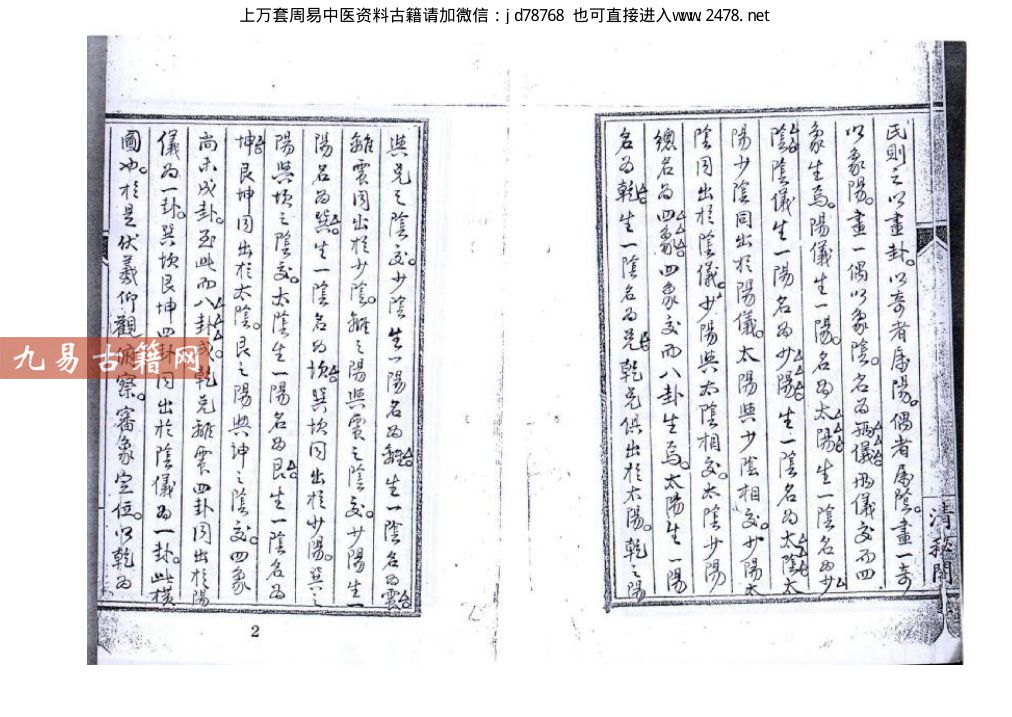 上万套周易中医资料古籍请加微信：jd78768 也可直接进入www.2478.net
民則之以畫卦。以奇者屬陽。偶者屬陰。畫一奇
以象陽。畫一偶以象陰。名為兩儀兩儀交而四
象生焉。陽儀生一陽。名為太陽生一陰名為少
陰陰儀生一陽名為少陽生一陰名為太陰太
陽少陰同出於陽儀。太陽與少陰相交。少陽太
陰同出於陰儀。少陽與太陰相交。太陰少陽
總名為四象四象交而八卦生焉。太陽生一陽
名為乾生一陰名為兌乾兌俱出於太陽。乾之陽
清秘閣
與兌之陰交。少陰生一陽名為離生一陰名為震
離震同出於少陰。離之陽與震之陰交。少陽生一
陽名為巽。生一陰名為坎巽坎同出於少陽。巽之
陽與坎之陰交。太陰生一陽名為艮。生一陰名為
坤艮坤同出於太陰。艮之陽與坤之陰交。四象
尚未成卦。至此而八卦成乾兌離震四卦同出於陽
儀為一卦。巽坎艮坤四卦同出於陰儀為一卦。此橫
圖也。於是伏羲仰觀俯察。審象定位。以乾為
2
九易古籍网